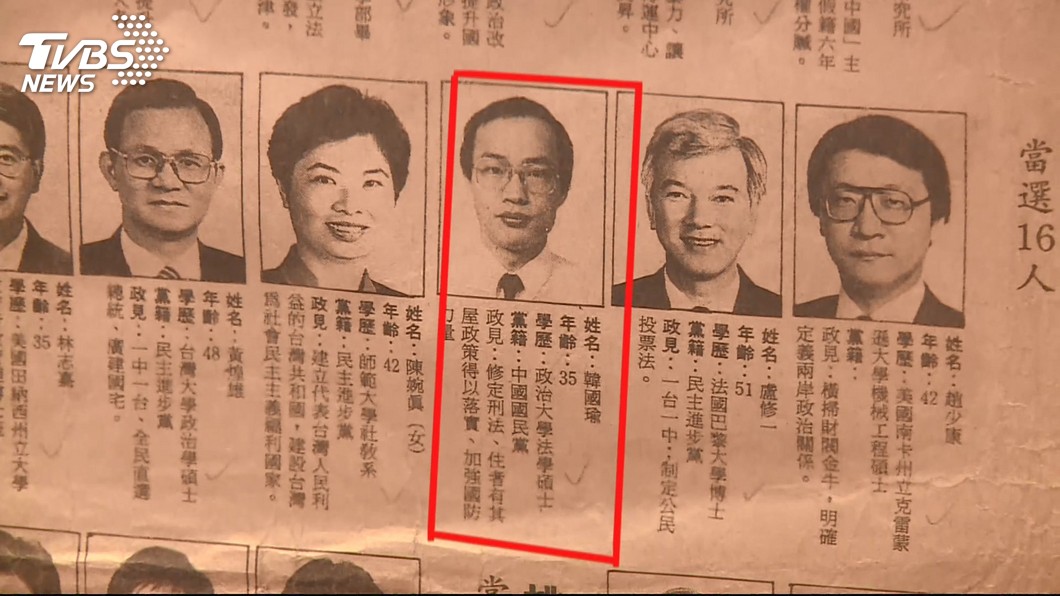 TVBS
NEWS
究所
中國」主
假籍六年
權分贓。
究所
力、讓
運中心
昇。
政治改
提升國
形象。
部畢
立法
發，
律。
當選16人
姓名：趙少康
年齡：42
學歷：美國南卡州立克雷蒙
遜大學機械工程碩士
黨籍：
政見：橫掃財閥金牛，明確
定義兩岸政治關係。
姓名：盧修一
年齡：51
學歷：法國巴黎大學博士
黨籍：民主進步黨
政見：一台一中：制定公民
投票法。
姓名：韓國瑜
年齡：35
學歷：政治大學法學碩士
黨籍：中國國民黨
政見：修定刑法、住者有其
屋政策得以落實、加強國防
力量
姓名：陳婉真（女）
年齡：42
學歷：師範大學社敎系
黨籍：民主進步黨
政見：建立代表台灣人民利
益的台灣共和國，建設台灣
為社會民主主義福利國家。
姓名：黃煌雄
年齡：48
學歷：台灣大學政治學碩士
黨籍：民主進步黨
政見：一中一台、全民直選
總統、廣建國宅。
姓名：林志嘉
年齡：35
學歷：美國田納西州立大學